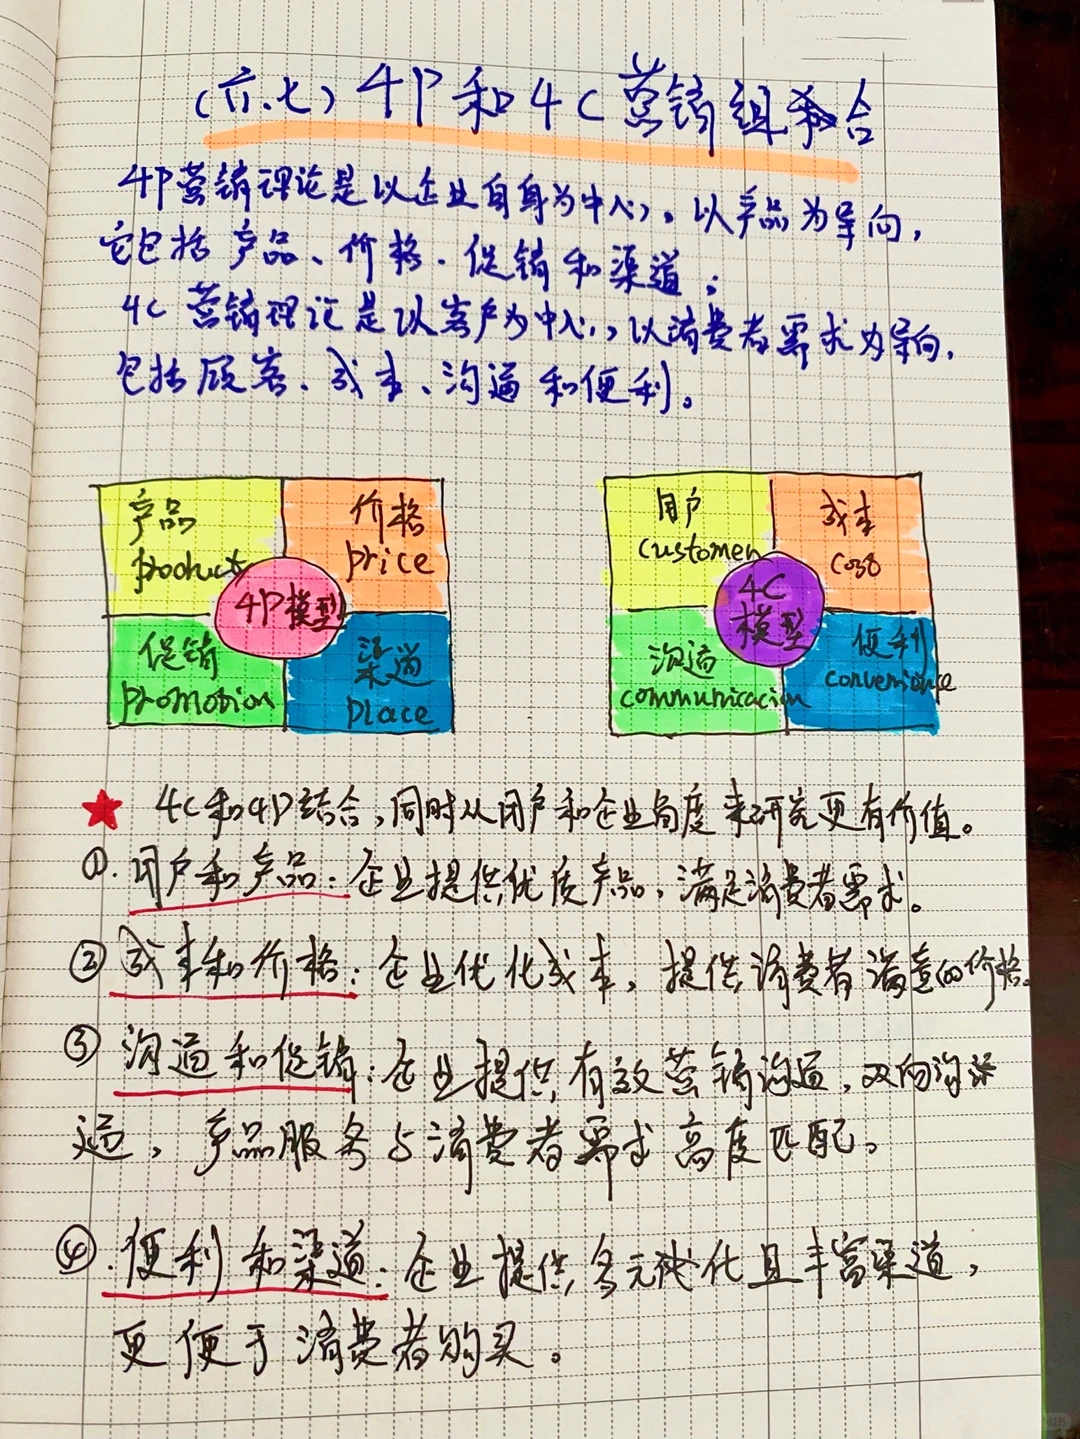 （六.七）4P和4C营销组合
4P营销理论是以企业自身为中心，以产品为导向，
它包括产品、价格、促销和渠道；
4C营销理论是以客户为中心，以消费者需求为导向，
包括顾客、成本、沟通和便利。
产品
product
价格
price
4P模型
促销
promotion
渠道
place
用户
customer
成本
cost
4C
模型
沟通
communicacion
便利
convenience
4C和4P结合，同时从用户和企业角度来研究更有价值。
①.用户和产品：企业提供优质产品，满足消费者需求。
②成本和价格：企业优化成本，提供消费者满意的价格。
③沟通和促销：企业提供有效营销沟通，双向沟
通，产品服务与消费者需求高度匹配。
④.便利和渠道：企业提供多元化且丰富渠道，
更便于消费者购买。